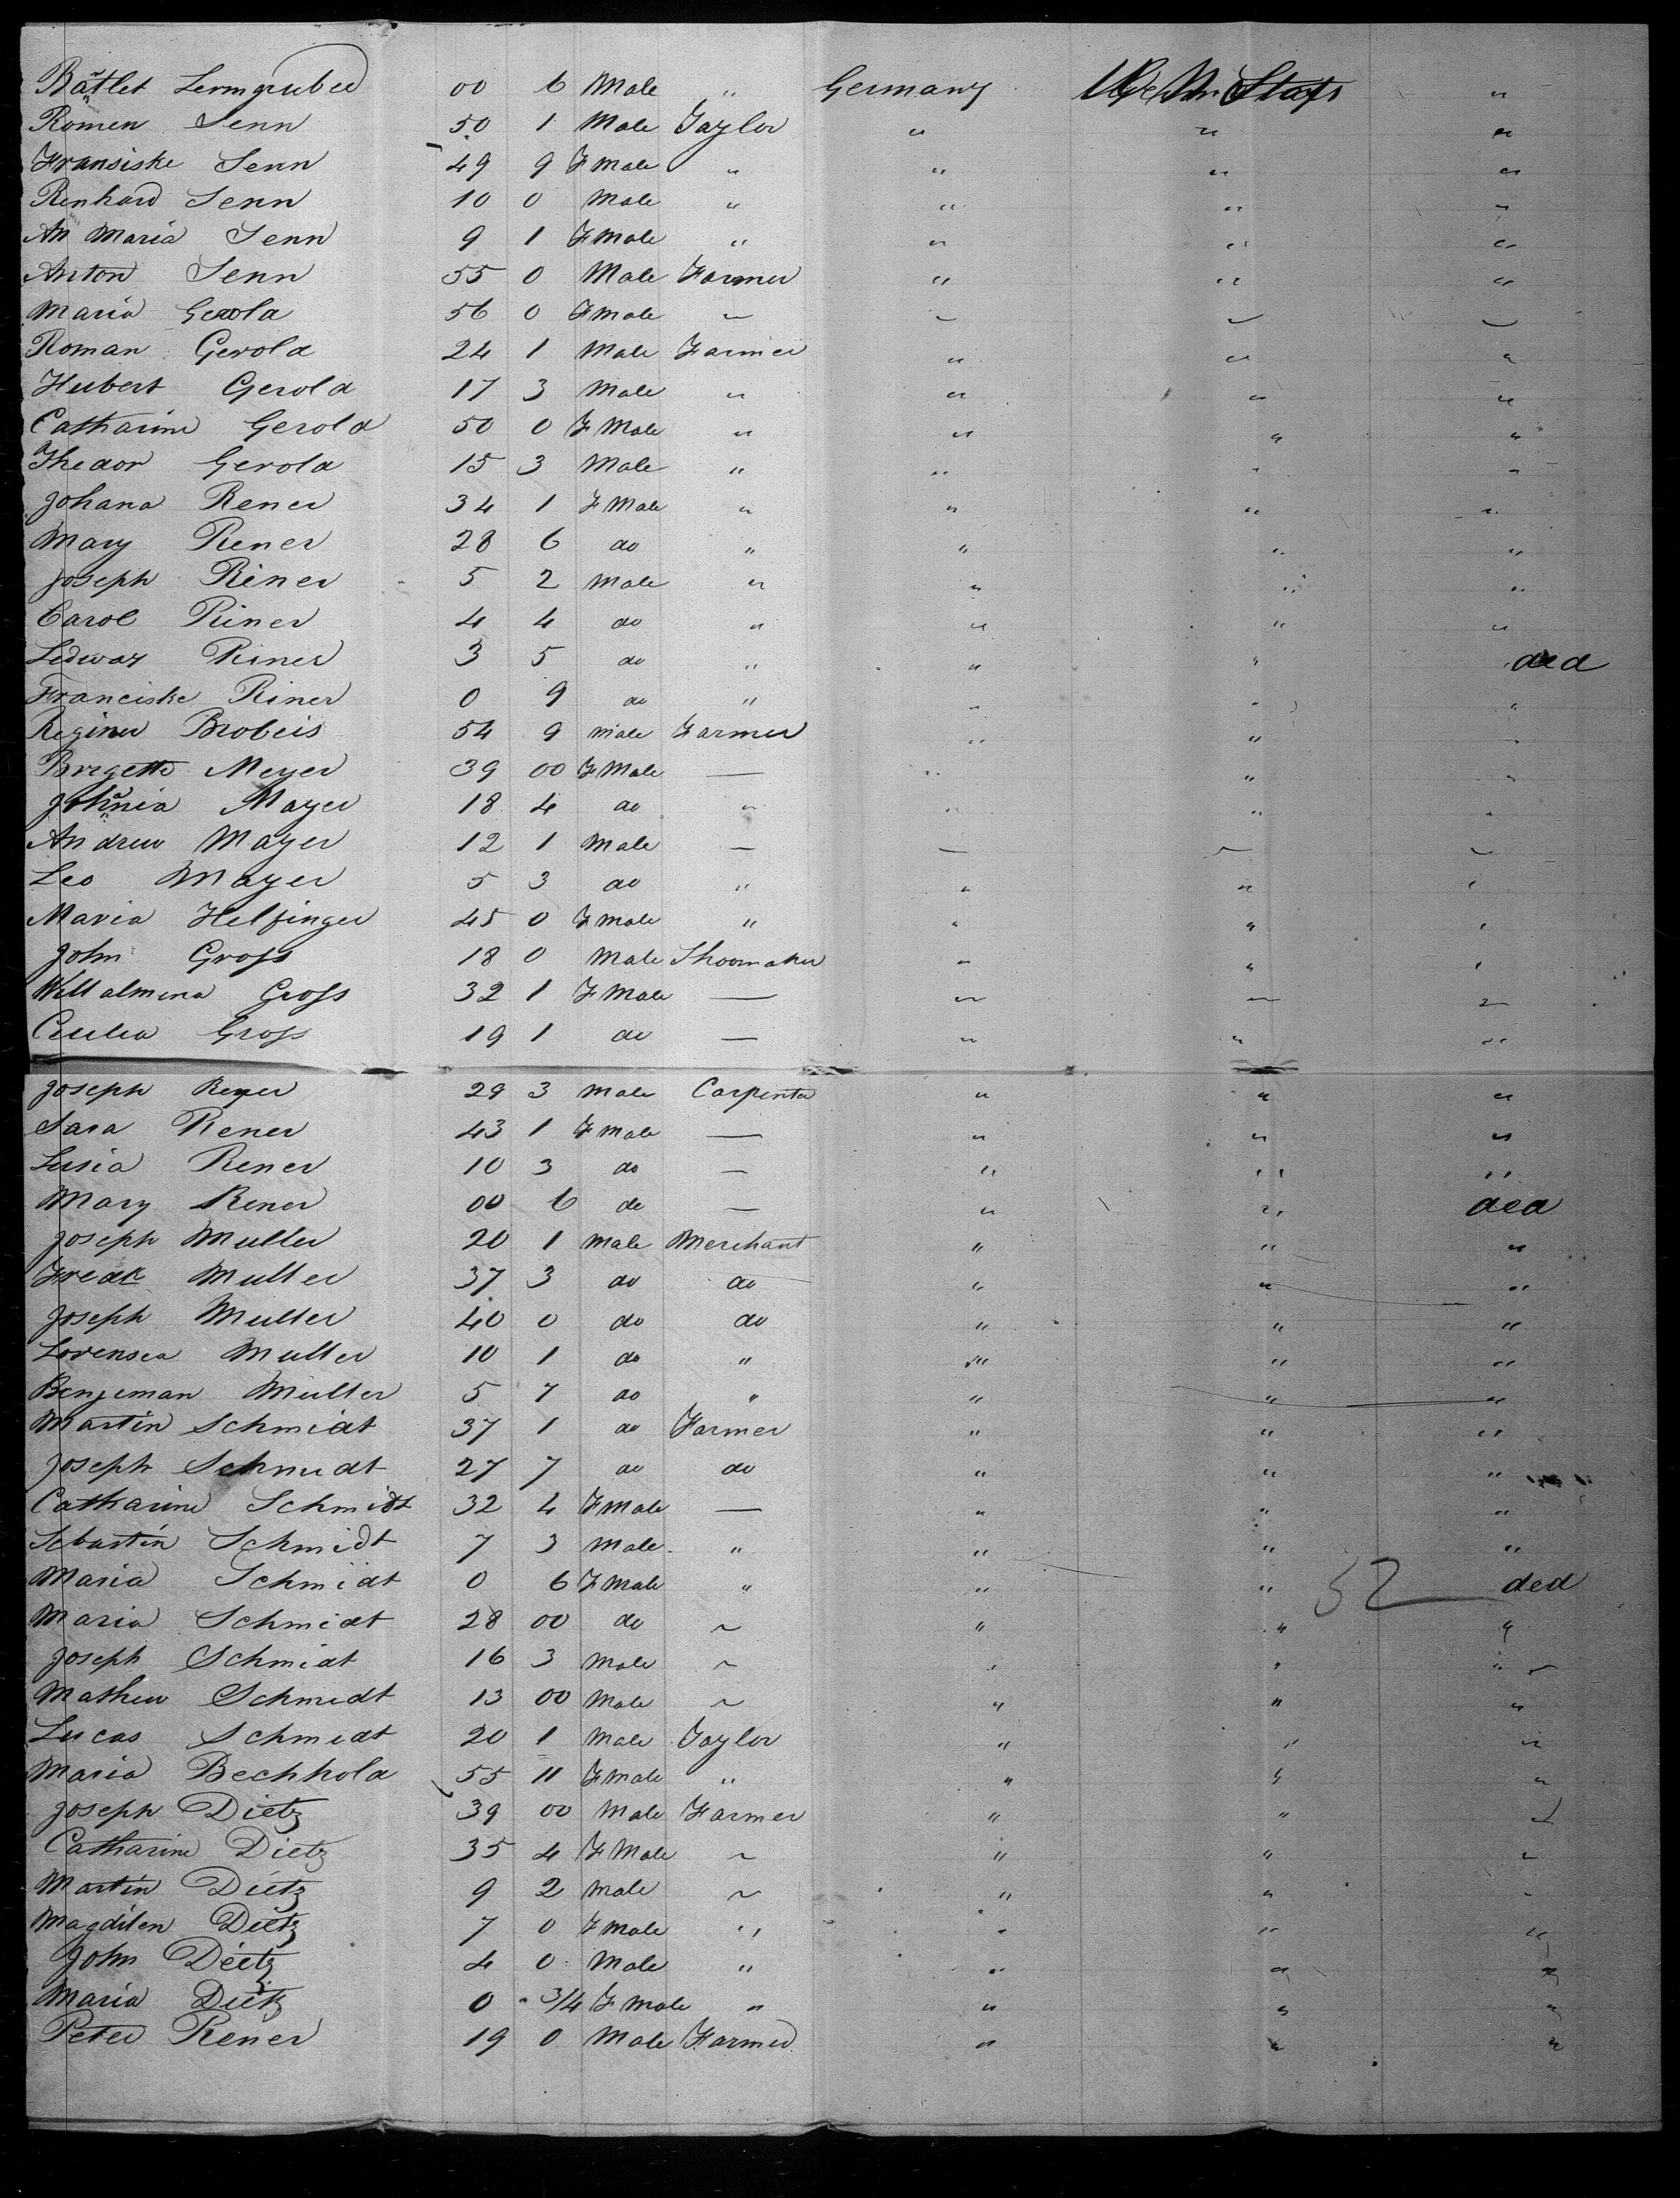 Batlet Lermgruber 00 6 Male " Germany Un. Stats "
Romen Senn 50 1 Male Taylor " " "
Fransiske Senn 49 9 Fmale " " " "
Renhard Senn 10 0 Male " " " "
An Maria Senn 9 1 Fmale " " " "
Anton Senn 55 0 Male Farmer " " "
Maria Gerold 56 0 Fmale " " " "
Roman Gerold 24 1 Male Farmer " " "
Hubert Gerold 17 3 Male " " " "
Catharine Gerold 50 0 F Male " " " "
Thedor Gerold 15 3 Male " " " "
Johana Rener 34 1 F Male " " " "
Mary Rener 28 6 do " " " "
Joseph Riner 5 2 Male " " " "
Carol Riner 4 4 do " " " "
Ledway Riner 3 5 do " " " ded
Franciske Riner 0 9 do " " " "
Reginer Brobeis 54 9 male Farmer " " "
Bregette Meyer 39 00 F Male — " " "
Johnia Mayer 18 4 do " " " "
Andrew Mayer 12 1 Male — — " "
Leo Mayer 5 3 do " " " "
Maria Helfinger 45 0 Fmale " " " "
John Gross 18 0 Male Shoomaker " " "
Willalmina Gross 32 1 F Male — " " "
Cecilia Gross 19 1 do — " " "
Joseph Rener 29 3 Male Carpenter " " "
Sara Rener 43 1 F male — " " "
Lusia Rener 10 3 do — " " "
Mary Rener 00 6 do — " " ded
Joseph Muller 20 1 Male Merchant " " "
Fredk Muller 37 3 do do " " "
Joseph Muller 40 0 do do " " "
Lorensea Muller 10 1 do " " " "
Benjeman Muller 5 7 do " " " "
Martin Schmidt 37 1 do Farmer " " "
Joseph Schmidt 27 7 do do " " "
Catharine Schmidt 32 4 Fmale — " " "
Sebastin Schmidt 7 3 Male " " " "
Maria Schmidt 0 6 Fmale " " " 52 ded
Maria Schmidt 28 00 do " " " "
Joseph Schmidt 16 3 Male " " " "
Mathew Schmidt 13 00 Male " " " "
Lucas Schmidt 20 1 Male Taylor " " "
Maria Bechhold 55 11 Fmale " " " "
Joseph Dietz 39 00 Male Farmer " " "
Catharine Dietz 35 4 F Male " " " "
Martin Dietz 9 2 Male " " " "
Magdilen Dietz 7 0 Fmale " " " "
John Dietz 4 0 Male " " " "
Maria Dietz 0 3/4 Fmale " " " "
Peter Rener 19 0 Male Farmer " " "